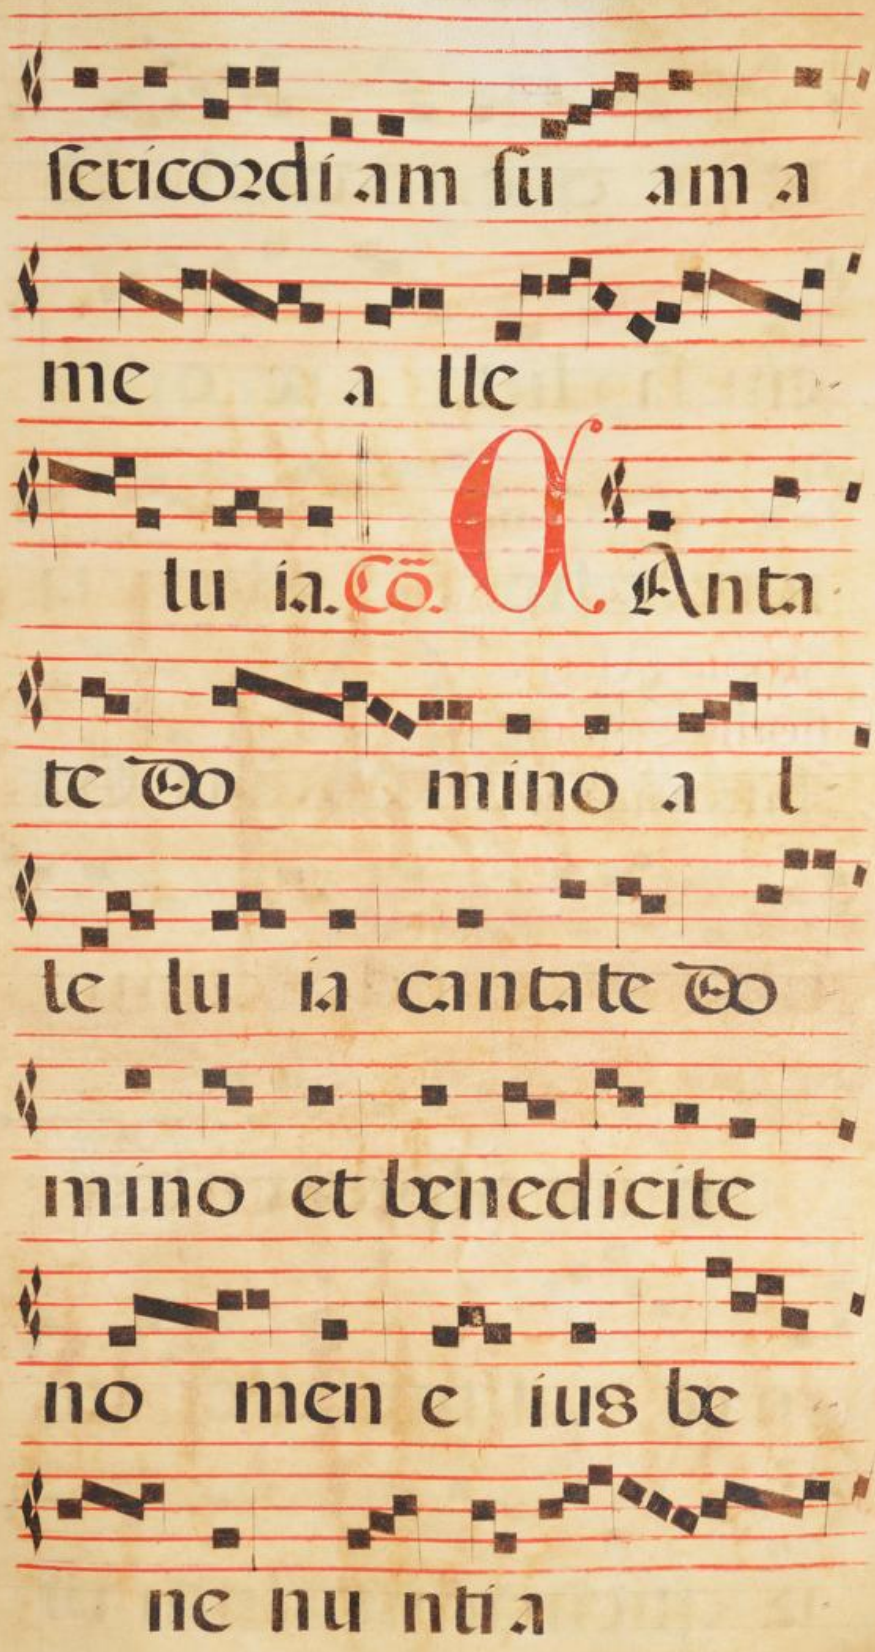 sericordi am su am a
me a lle
lu ia. Cō. C Anta
te Do mino a l
le lu ia cantate Do
mino et benedicite
no men e ius be
ne nu nti a